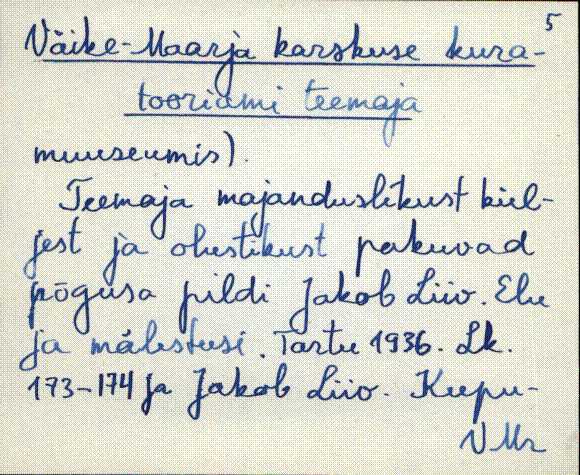 5
Väike-Maarja karskuse kura-
tooriumi teemaja
muuseumis).
Teemaja majanduslikust kül-
jest ja olustikust pakuvad
põgusa pildi Jakob Liiv. Elu
ja mälestusi. Tartu 1936. Lk.
173-174 ja Jakob Liiv. Kupu-
VMr